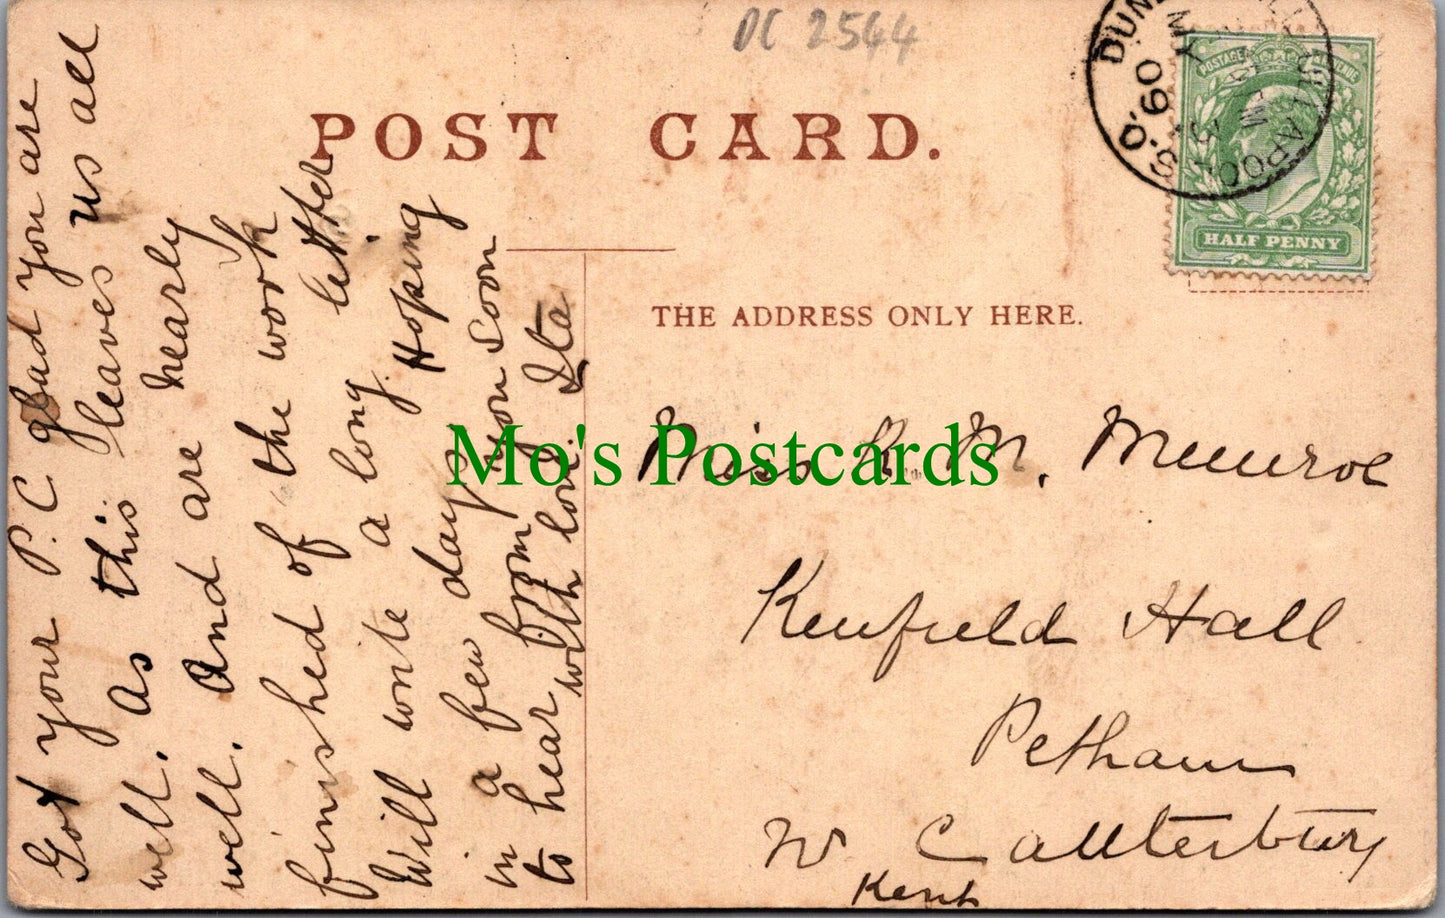 DC 2544
POST CARD.
THE ADDRESS ONLY HERE.
HALF PENNY
S.O.
MY
09
Mo's Postcards
Miss K. M. Munroe
Kenfield Hall
Petham
Nr Canterbury
Kent
Got your P.C glad you are
well. As this leaves us all
well. And are nearly
finished of the work
Will write a long letter
in a few days. Hoping
to hear from you soon
with love. Ita